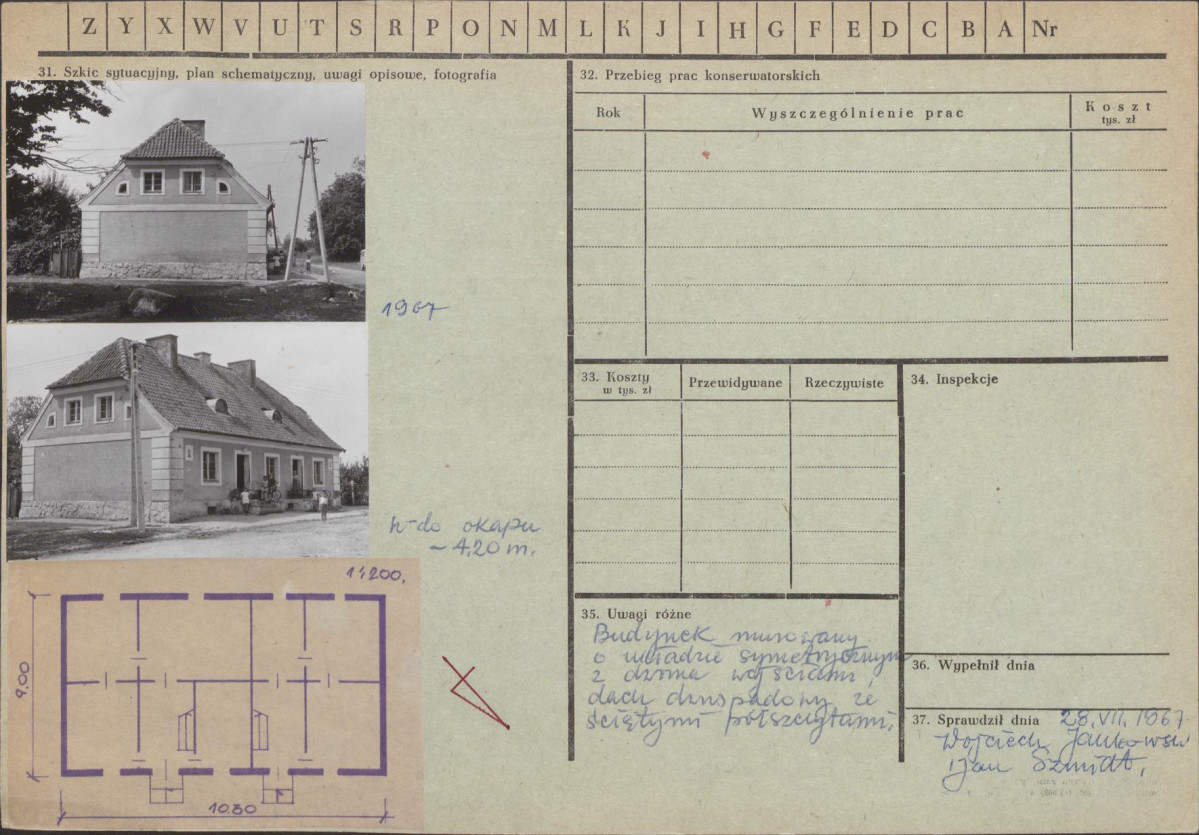 Z Y X W V U T S R P O N M L K J I H G F E D C B A Nr
31. Szkic sytuacyjny, plan schematyczny, uwagi opisowe, fotografia
1967
h-do okapu
~ 4,20 m.
1:200.
9,00
10.80
32. Przebieg prac konserwatorskich
Rok
Wyszczególnienie prac
Koszt
tys. zł
33. Koszty
w tys. zł
Przewidywane
Rzeczywiste
34. Inspekcje
35. Uwagi różne
Budynek murowany
o układzie symetrycznym
z dwoma wejściami,
dach dwuspadowy ze
ściętymi półszczytami.
36. Wypełnił dnia
37. Sprawdził dnia 28.VII.1967
Wojciech Jankowski
i Jan Szmidt,